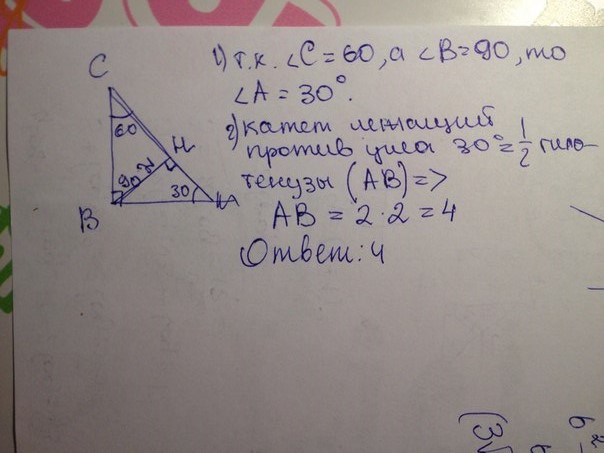 1) т.к. ∠C = 60, а ∠B = 90, то
∠A = 30°.
2) катет лежащий
против угла 30° = 1/2 гипо-
тенузы (AB) =>
AB = 2·2 = 4
Ответ: 4
C
60
H
2
90
30
A
B
b²
(3√